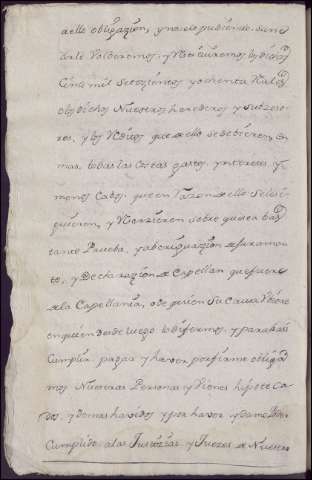 aello obligazion, y no elo pudiendo, sane
darle Volberemos, y Restituiremos los dichos
Cinto mil setezientos y ochenta Reales
olos dichos Nuestros herederos y Subzeso
res, y los Reditos que dello se debieren, Con
mas, todas las Costas, gastos, yntereses, y
menos Cabos, que en Razon dello se les si
guieren, y Rezrezieren sobre que sea bas
tante Prueba, y aberiguazion el Juramen
to, y Declarazion el Capellan que fuere
de la Capellania, o de quien su Causa Ubiere
en quien desde luego lo diferimos, y para hasi
Cumplir pagar y haver por firme obliga
mos Nuestras Personas y Vienes hipoteca
dos, y demas havidos y por haver, y damos Poder
Cumplido alas Justizias y Juezes de Nuestro